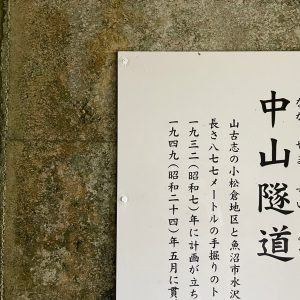 中山隧道
山古志の小松倉地区と魚沼市水沢
長さ八七七メートルの手掘りのト
一九三二(昭和七)年に計画が立ち
一九四九(昭和二十四)年五月に貫